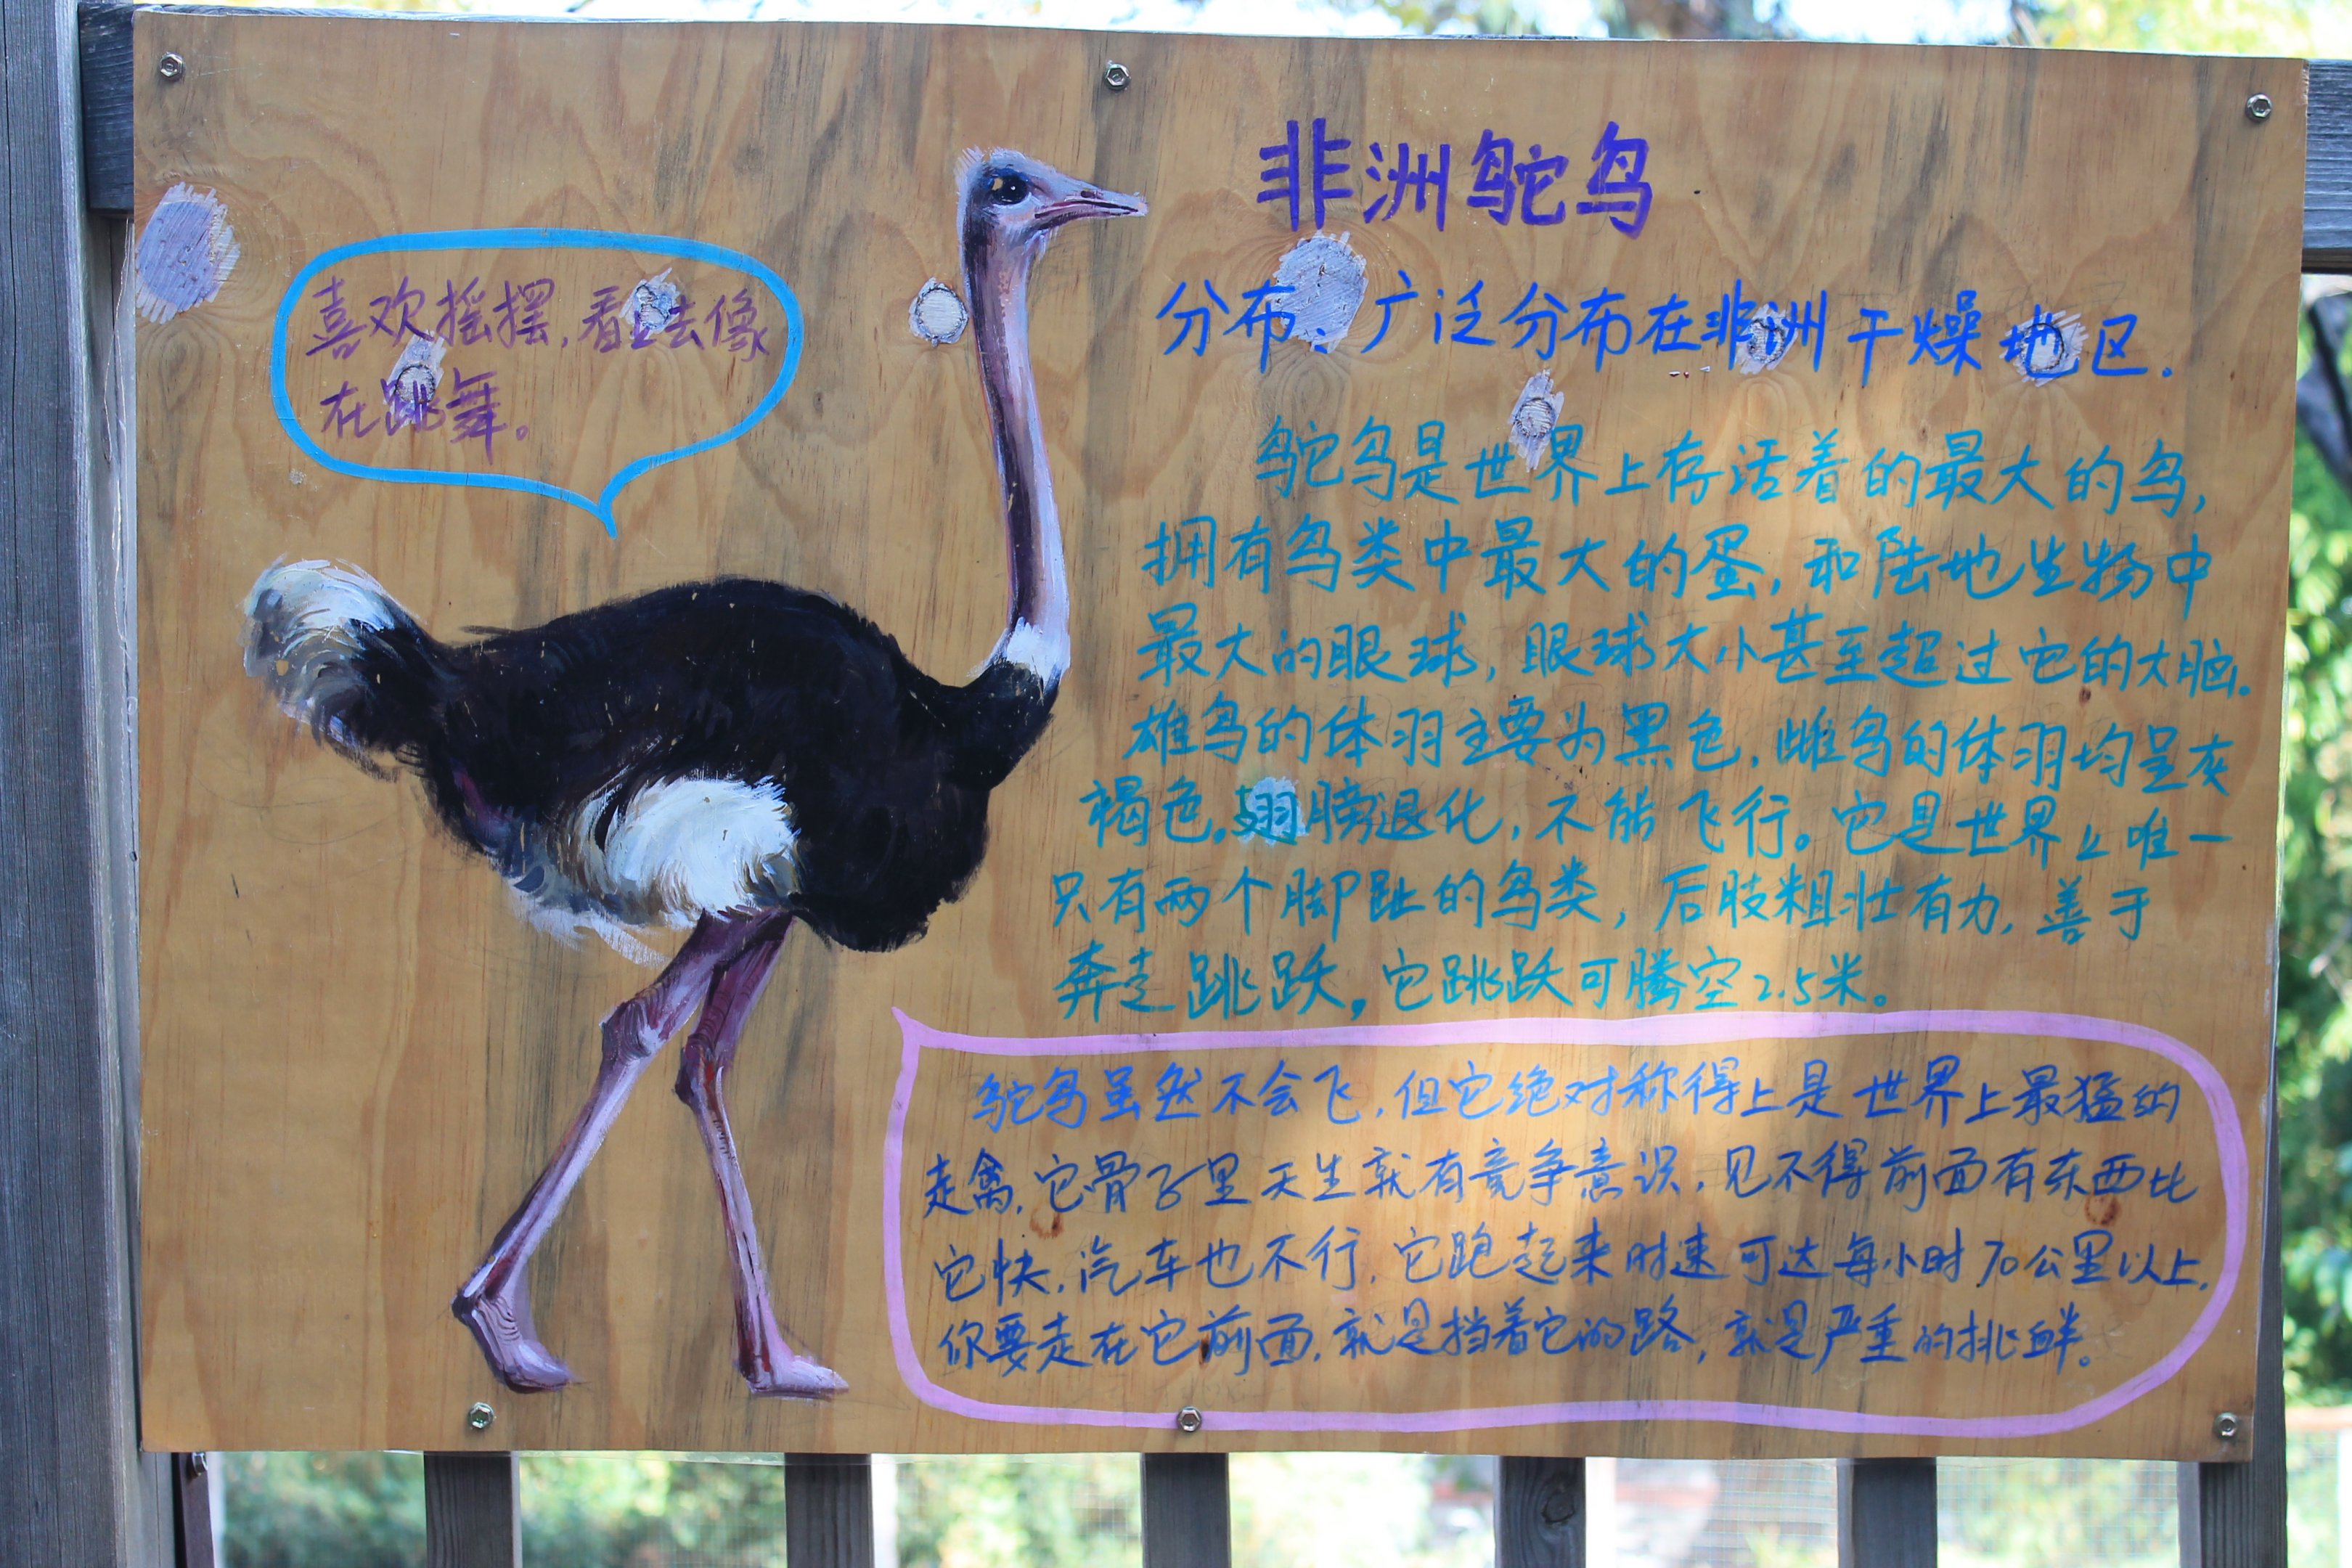 非洲鸵鸟
喜欢摇摆,看上去像
在跳舞。
分布:广泛分布在非洲干燥地区.
鸵鸟是世界上存活着的最大的鸟,
拥有鸟类中最大的蛋,和陆地生物中
最大的眼球,眼球大小甚至超过它的大脑.
雄鸟的体羽主要为黑色,雌鸟的体羽均呈灰
褐色。翅膀退化,不能飞行。它是世界上唯一
只有两个脚趾的鸟类,后肢粗壮有力,善于
奔走跳跃。它跳跃可腾空2.5米。
鸵鸟虽然不会飞,但它绝对称得上是世界上最猛的
走禽,它骨子里天生就有竞争意识,见不得前面有东西比
它快,汽车也不行,它跑起来时速可达每小时70公里以上,
你要走在它前面,就是挡着它的路,就是严重的挑衅。